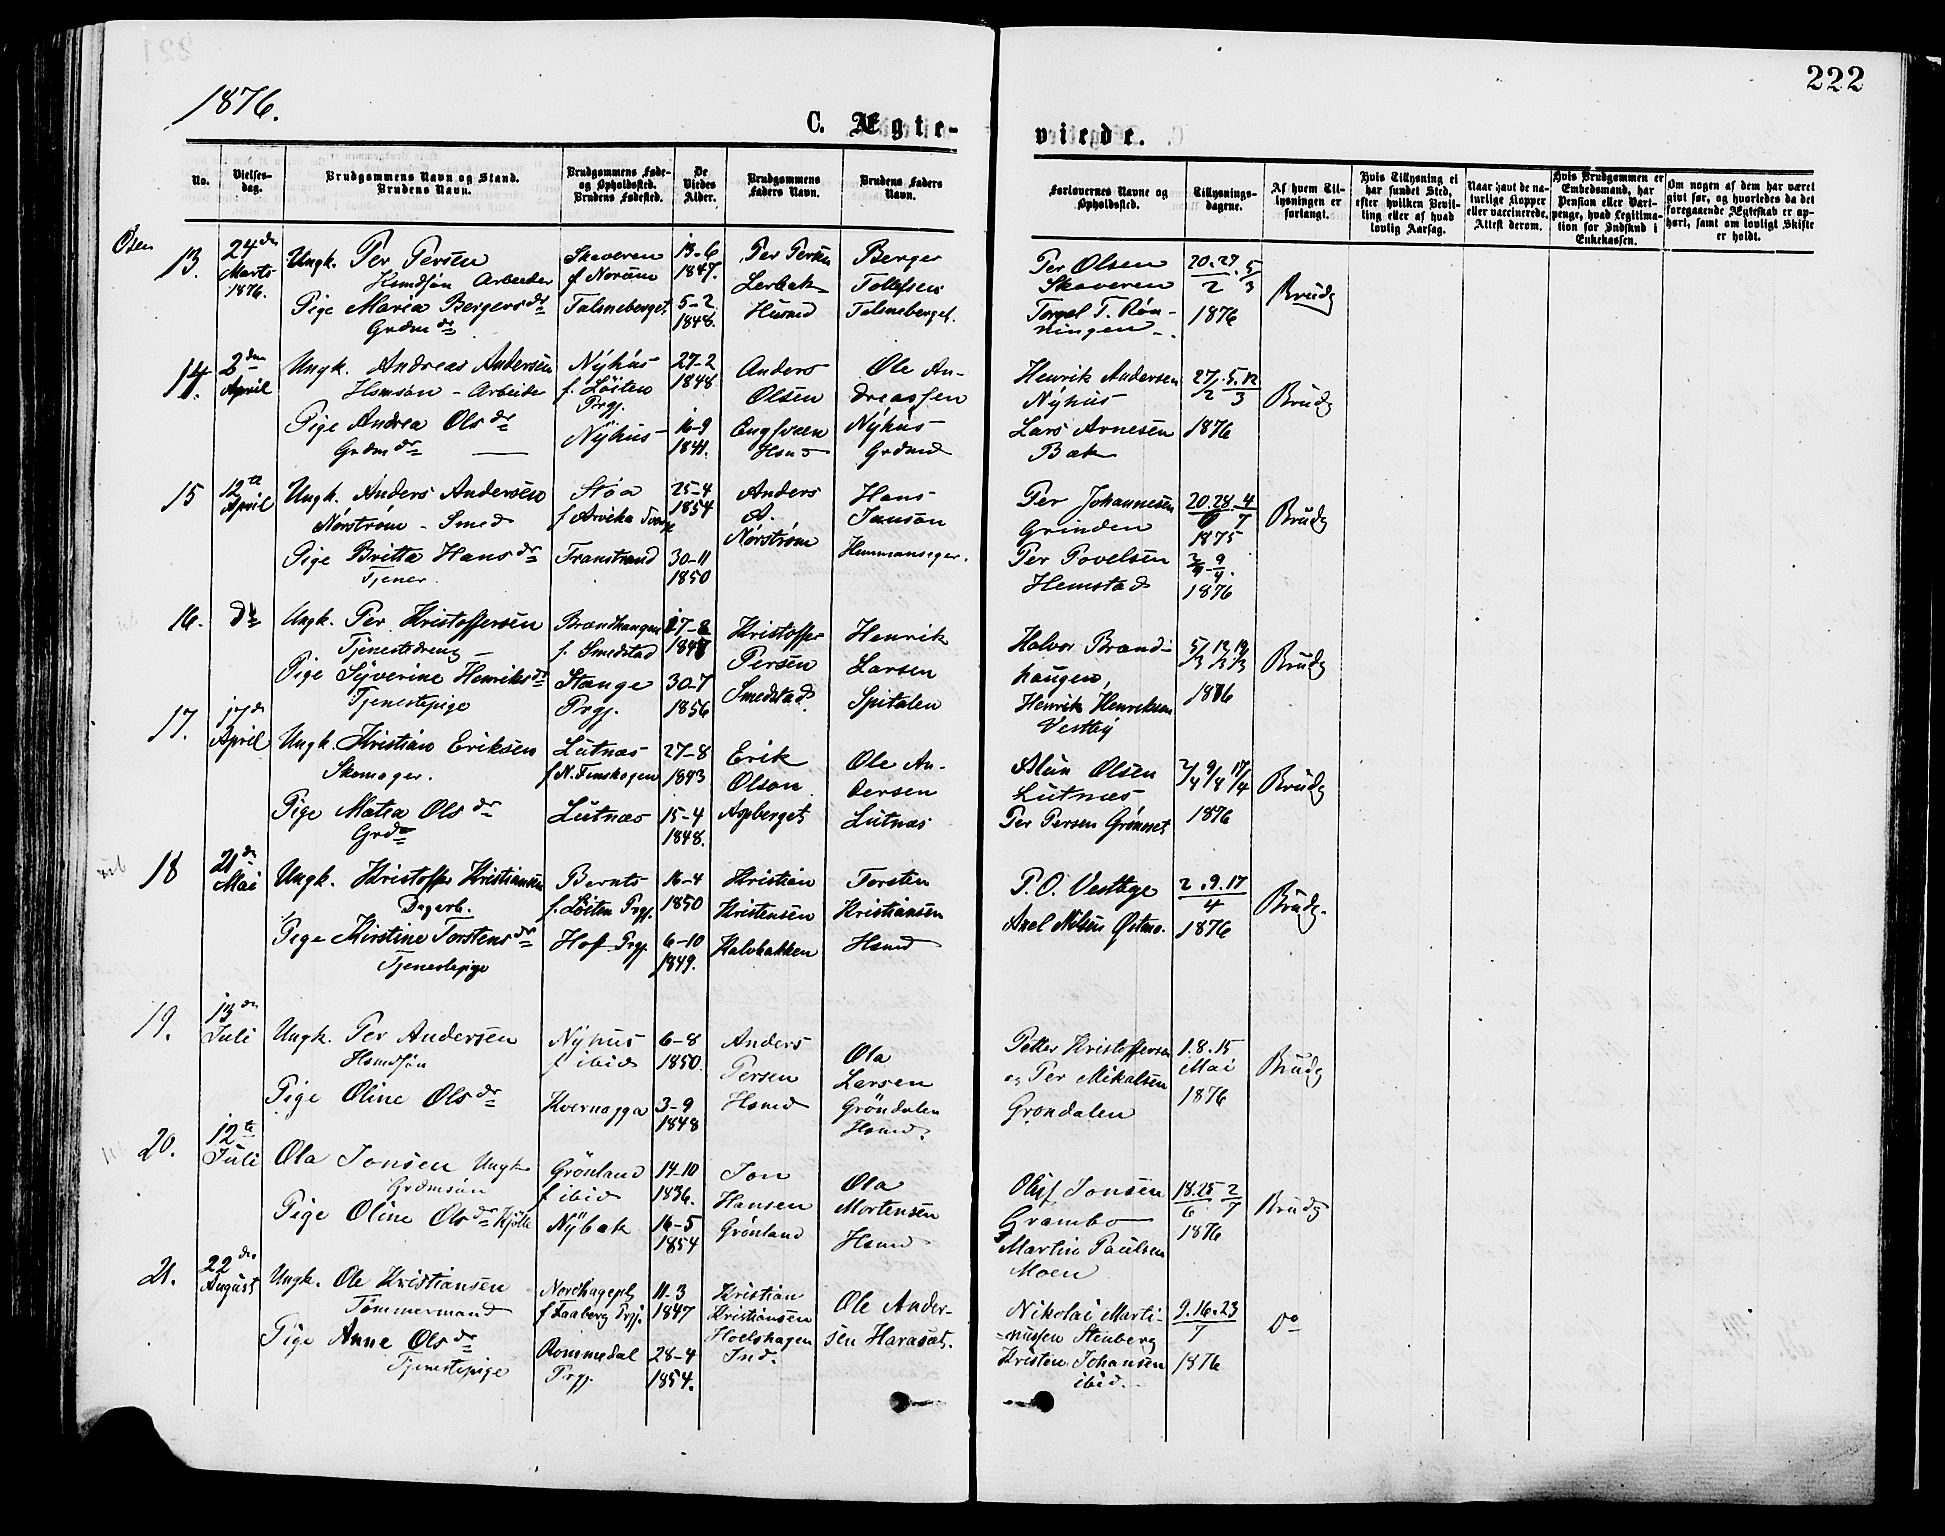 222
1876.
C. Ægte-
viede.
No.
Vielses-
dag.
Brudgommens Navn og Stand.
Brudens Navn.
Brudgommens Føde-
og Opholdssted.
Brudens Fødested.
De
Viedes
Alder.
Brudgommens
Faders Navn.
Brudens Faders
Navn.
Forlovernes Navne og
Opholdssted.
Tillysnings-
dagene.
Af hvem Til-
lysningen er
forlangt.
Hvis Tillysning ei
har fundet Sted,
efter hvilken Bevil-
ling eller af hvad
lovlig Aarsag.
Naar havt de na-
turlige Kopper
eller vaccinerede,
Attest derom.
Hvis Brudgommen er
Embedsmand, har
Pension eller Vart-
penge, hvad Legitima-
tion for Indskud i
Enkekassen.
Om nogen af dem har været
givt før, og hvorledes da det
foregaaende Ægteskab er op-
hørt, samt om lovligt Skifte
er holdt.
Osen
13.
24de
Marts
1876.
Ungk. Per Persen
Hsmdsøn Arbeider
Pige Maria Bergersdr
Grdmdr
Skaveren
f Norum
Talsneberget
13-6
1847.
5-2
1848.
Per Persen
Lerbak
Husmd
Berger
Tollefsen
Talsneberget.
Per Olsen
Skaveren
Torgel T. Røn-
ningen
20.27. 5
2 3
1876
Brudg
14.
2den
April
Ungk. Andreas Andersen
Hsmsøn - Arbeider
Pige Andrea Olsdr
Grdmdr
Nyhus
f. Løiten
Prgj.
Nyhus
27-2
1848
16-9
1841.
Anders
Olsen
Engsveen
Hsmd
Ole An-
dreassen
Nyhus
Grdmd
Henrik Andersen
Nyhus
Lars Arnesen
Bæk
27/2. 5.12
3
1876
Brudg
15
12te
April
Ungk. Anders Andersen
Nørstrøm - Smed
Pige Britta Hansdr
Tjener.
Støa
f Arvika
Transtrand
25-4
1854
30-11
1850
Anders
A.
Nørstrøm
Hans
Janson
Hemmanseger.
Per Johannesen
Grinden
Per Povelsen
Hemstad
20.28. 4
6 7
1875
2/4 9/4.
1876
Brudg
16.
do
Ungk. Per Kristoffersen
Tjenestedreng
Pige Syverine Henriksdr
Tjenestepige
Brændhaugen
f. Smedstad
Stange
Prgj.
17-8
1847
30-7
1856
Kristoffer
Persen
Smedstad
Henrik
Larsen
Spitalen
Halvor Brænd-
haugen,
Henrik Henriksen
Vestby
5/3 12/3 19/3
1876
Brudg
17.
17de
April
Ungk. Kristian Eriksen
Skomager.
Pige Matea Olsdr
Grdr
Lutnæs
f N. Finskogen
Lutnæs
27-8
1843
15-4
1848.
Erik
Olson
Aspberget
Ole An-
dersen
Lutnæs
Olsen
Lutnæs
Per Persen Grønoset
2/4 9/4 17/4
1876
Brudg
18
21de
Mai
Ungk. Kristoffer Kristiansen
Dagarb.
Pige Kirstine Torstensdr
Tjenestepige
Bernts
f. Løiten Prgj.
Hof Prgj.
16-4
1850
6-10
1849.
Kristian
Kristensen
Kalvbakken
Torsten
Kristiansen
Hsmd
P. O. Vestbye
Axel Nilsen Østmo.
2.9.17
4
1876
Brudg.
19.
13de
Juli
Ungk. Per Andersen
Hsmdsøn
Pige Oline Olsdr
Nyhus
f ibid
Kvernogga
6-8
1850.
3-9
1848
Anders
Persen
Hsmd
Ola
Larsen
Grøndalen
Hsmd.
Petter Kristoffersen
og Per Mikalsen
Grøndalen
1.8.15
Mai
1876
Brudg
20.
12te
Juli
Ola Jonsen Ungk
Grdmsøn
Pige Oline Olsdr Kjølle
Grönland
f ibid
Nybak
14-10
1836.
16-5
1854
Jon
Hansen
Grønland
Ola
Mortensen
Hsmd
Oluf Jonsen
Grambo
Martin Paulsen
Moen
18.25 2
6 7
1876
Brudg
21.
22de
August
Ungk. Ole Kristiansen
Tömmermand
Pige Anne Olsdr
Tjenestepige
Nordhagepl.
f Faaberg Prgj.
Rommedal
Prgj.
11-3
1847
28-4
1854.
Kristian
Kristiansen
Hoelshagen
Ind.
Ole Ander-
sen Haraset.
Nikolai Marti-
nussen Stenberg
Kristen Johansen
ibid.
9.16.23
7
1876
Do